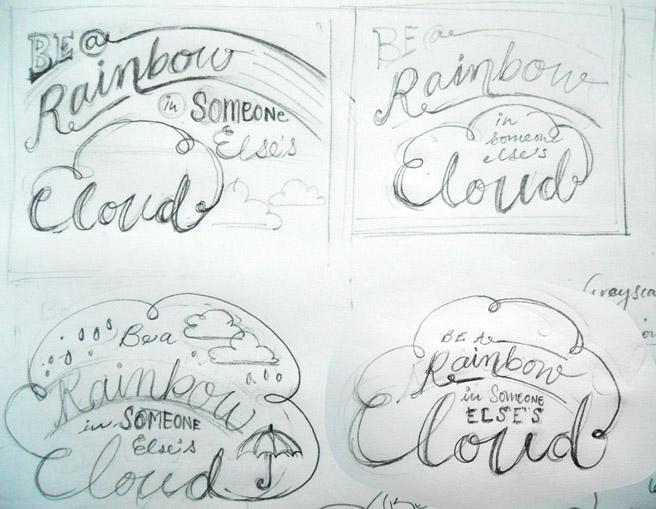 BE a
Rainbow
in SOMEONE
Else's
Cloud
BE a
Rainbow
in
someone
else's
Cloud
Be a
Rainbow
in SOMEONE
Else's
Cloud
BE A
Rainbow
in SOMEONE
ELSE'S
Cloud